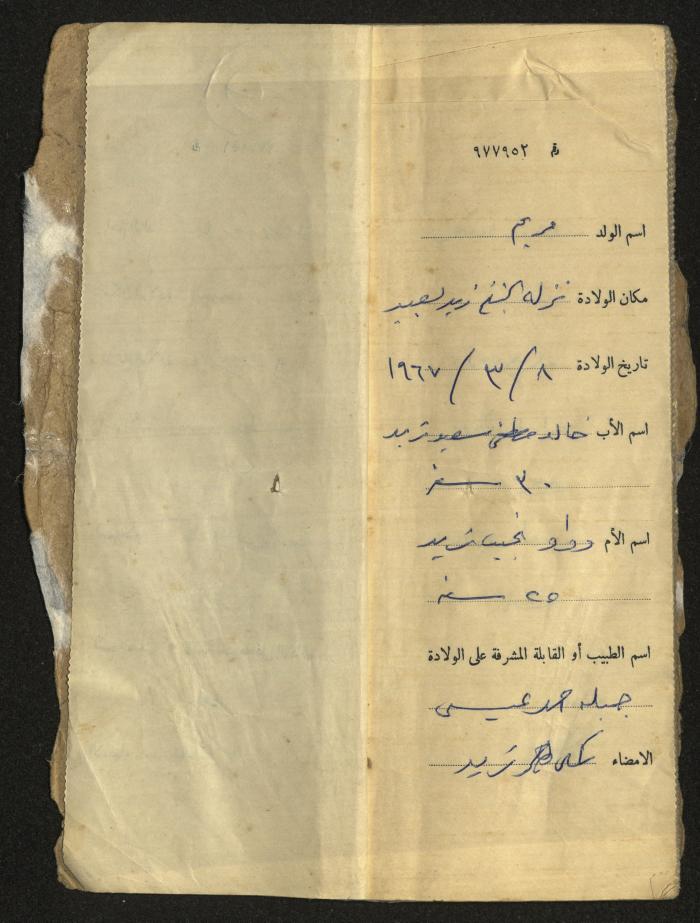 رقم ٩٧٧٩٥٢
اسم الولد مريم
مكان الولادة نزلة الشيخ زيد يعبد
تاريخ الولادة ٨ / ٣ / ١٩٦٧
اسم الأب خالد مصطفى سعيد زيد
٣٠ سنة
اسم الأم نجيب زيد
٢٥ سنة
اسم الطبيب أو القابلة المشرفة على الولادة
جميله حمد عيسى
الامضاء زيد